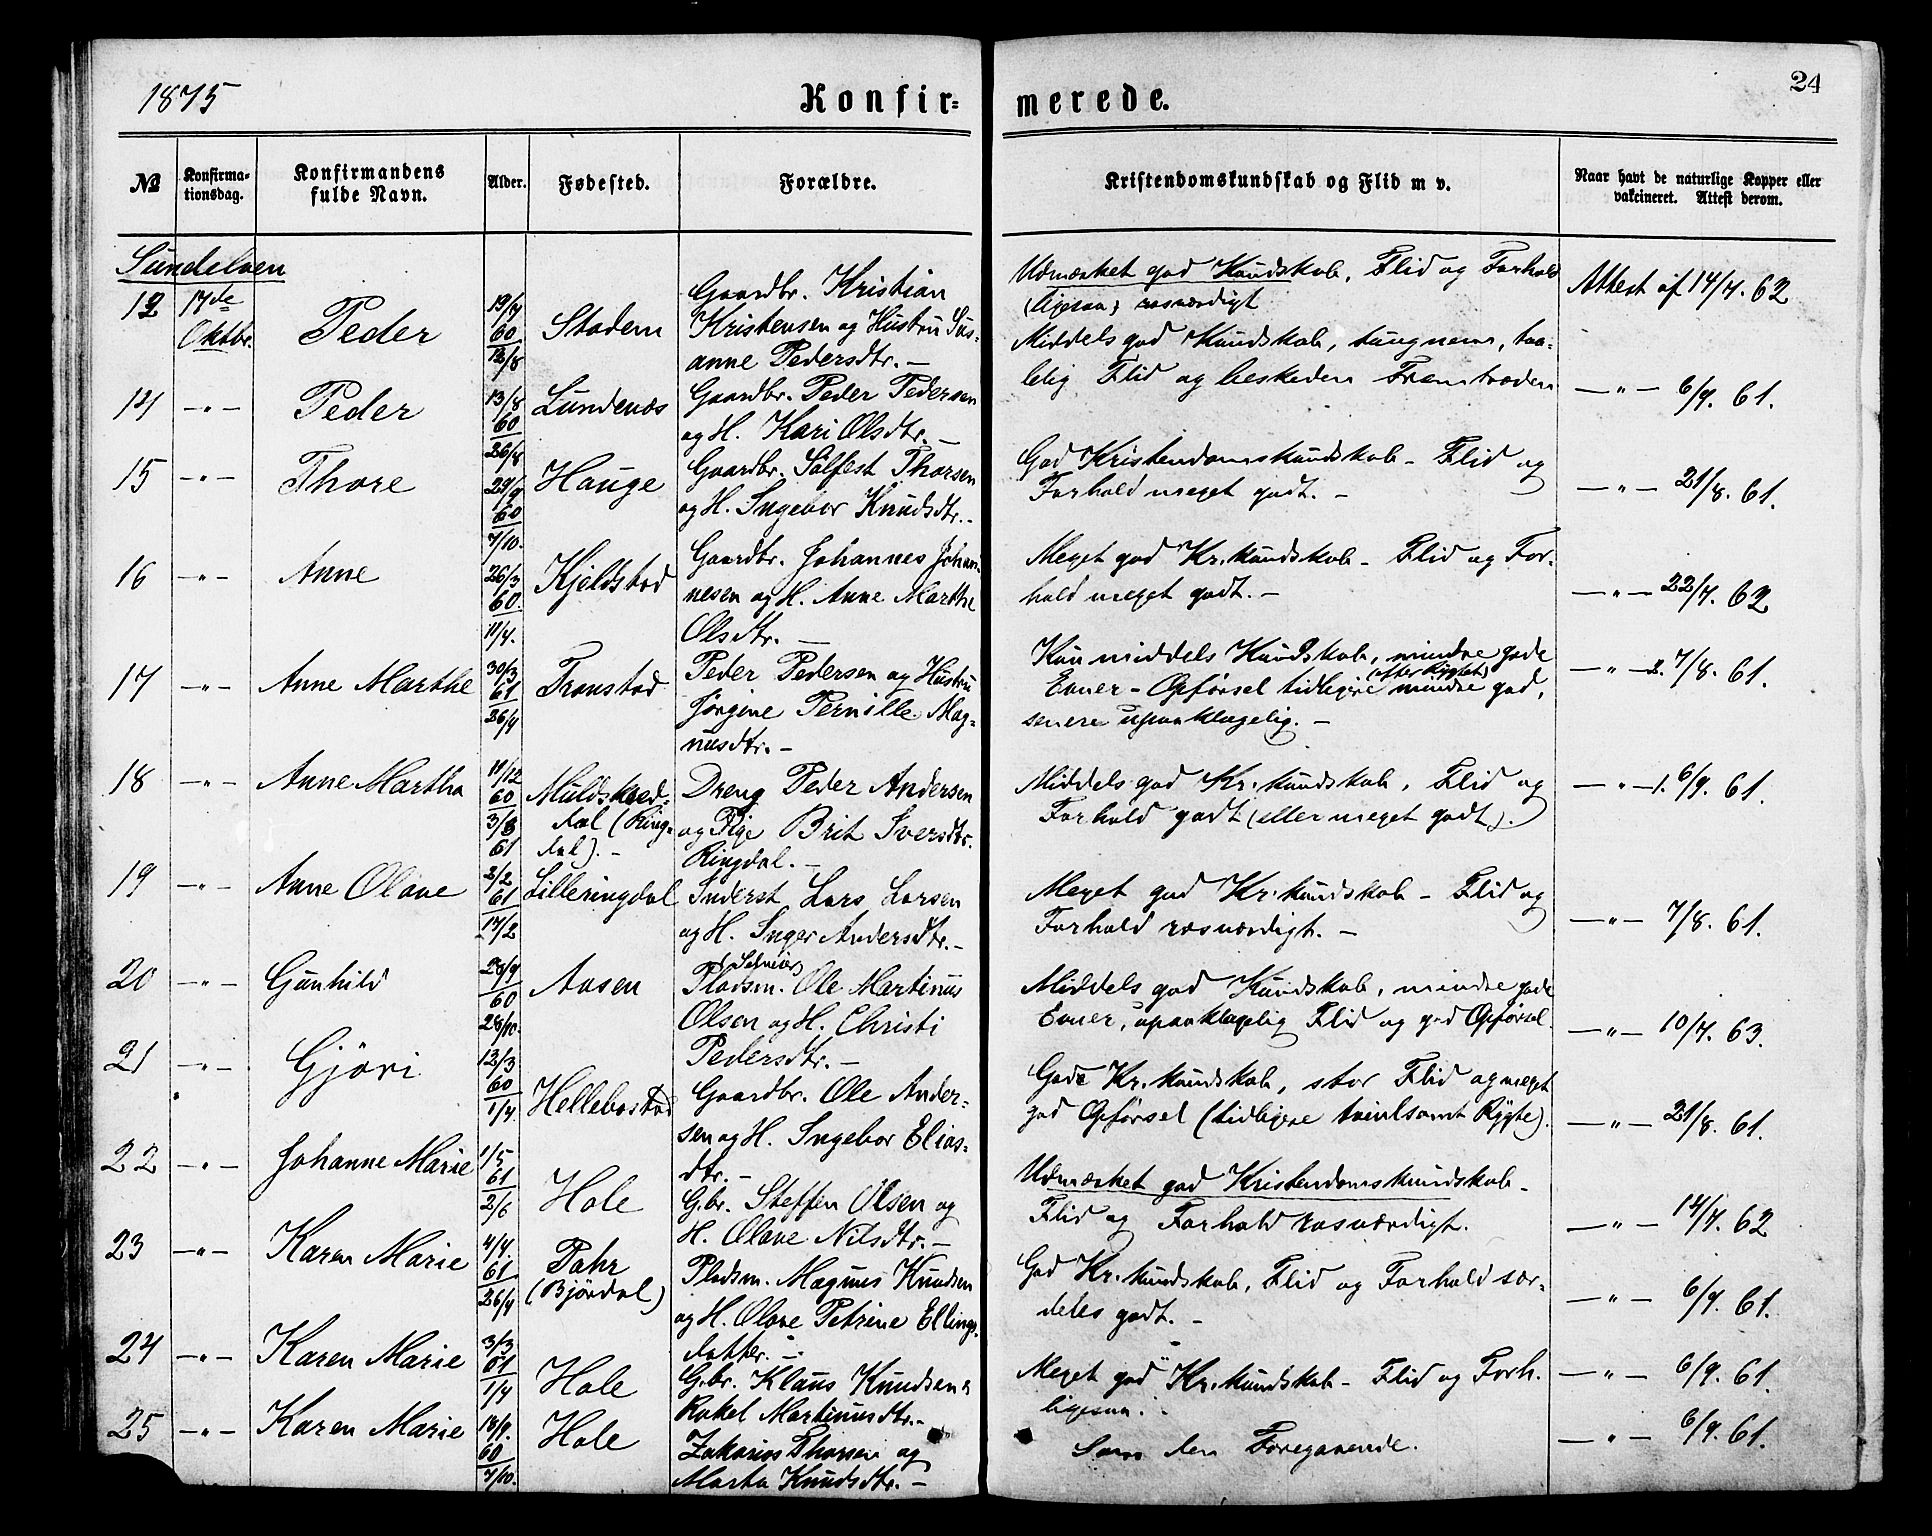 1875
Konfir=
merede.
24
№
Konfirma-
tionsdag.
Konfirmandens
fulde Navn.
Alder.
Fødested.
Forældre.
Kristendomskundskab og Flid m v.
Naar havt de naturlige Kopper eller
vakcineret. Attest derom.
Sundelven
12 17de Oktbr. Peder 19/7 60 12/8 Stadem
Gaardbr. Kristian
Kristensen og Hustru Sus-
anne Pedersdtr. –
Udmærket god Kundskab, Flid og Forhold
(ligesaa) rosværdigt
Attest af 14/7. 62
14 –"– Peder 13/8 60 26/8 Lundenæs
Gaardbr. Peder Pedersen
og H. Kari Olsdtr. –
Middels god Kundskab, tungnem, taa-
lelig Flid og beskeden Fremtræden
–"– 6/9. 61.
15 –"– Thore 29/9 60 7/10. Hauge
Gaardbr. Sølfest Thorsen
og H. Ingebor Knudsdtr. –
God Kristendomskundskab – Flid og
Forhold meget godt. –
–"– 21/8. 61.
16 –"– Anne 26/3 60. 11/4. Kjeldstad
Gaardbr. Johannes Johan-
nesen og H. Anne Marthe
Olsdtr. –
Meget god Kr.kundskab – Flid og For-
hold meget godt. –
–"– 22/7. 62
17 –"– Anne Marthe 30/3 61 26/4 Tronstad
Peder Pedersen og Hustru
Jørgine Pernille Mag-
nusdtr. –
Kun middels Kundskab, mindre gode
Evner – Opførsel tidligere (efter Rygtet) mindre god,
senere upaaklagelig. –
–"– 2. 7/8. 61.
18 –"– Anne Martha 11/12 60 3/8 61 Muldskred-
dal (Ring-
dal). –
Dreng Peder Andersen
og Pige Brit Iversdtr.
Ringdal. –
Middels god Kr.kundskab, Flid og
Forhold godt (eller meget godt).
–"– 1. 6/9. 61.
19 –"– Anne Olave 2/2 61 17/2 Lilleringdal
Inderst Lars Larsen
og H. Inger Andersdtr. –
Meget god Kr.kundskab – Flid og
Forhold rosværdigt. –
–"– 7/8. 61.
20 –"– Gunhild 28/9 60 28/10. Aasen
Pladsm. Ole Martinus
Olsen og H. Christi
Pedersdtr. –
Middels god Kundskab, mindre gode
Evner, upaaklagelig Flid og god Opførsel
–"– 10/7. 63.
21 –"– Gjöri 12/3 60 1/4. Hellebostad
Gaardbr. Ole Ander-
sen og H. Ingebor Elias-
dtr. –
Gode Kr.kundskab, stor Flid og meget
god Opførsel (tidligere tvivlsomt Rygte).
–"– 21/8. 61.
22 –"– Johanne Marie 1/5 61 2/6 Hole
G.br. Steffen Olsen og
H. Olave Nilsdtr. –
Udmærket god Kristendomskundskab –
Flid og Forhold rosværdigt.
–"– 14/7. 62
23 –"– Karen Marie 4/4. 61 26/4 Dahr
(Bjørdal)
Pladsm. Magnus Knudsen
og H. Olave Petrine Ellings-
datter. –
God Kr.kundskab, Flid og Forhold sær-
deles godt. –
–"– 6/9. 61.
24 –"– Karen Marie 3/3 61 1/4 Hole
G.br. Klaus Knudsen &
Rakel Martinusdtr. –
Meget god Kr.kundskab – Flid og Forh.
ligesaa.
–"– 6/9. 61.
25 –"– Karen Marie 18/9. 60 7/10. Hole
Zakarias Thorsen og
Marta Knudsdtr. –
Som den Foregaaende.
–"– 6/9. 61.